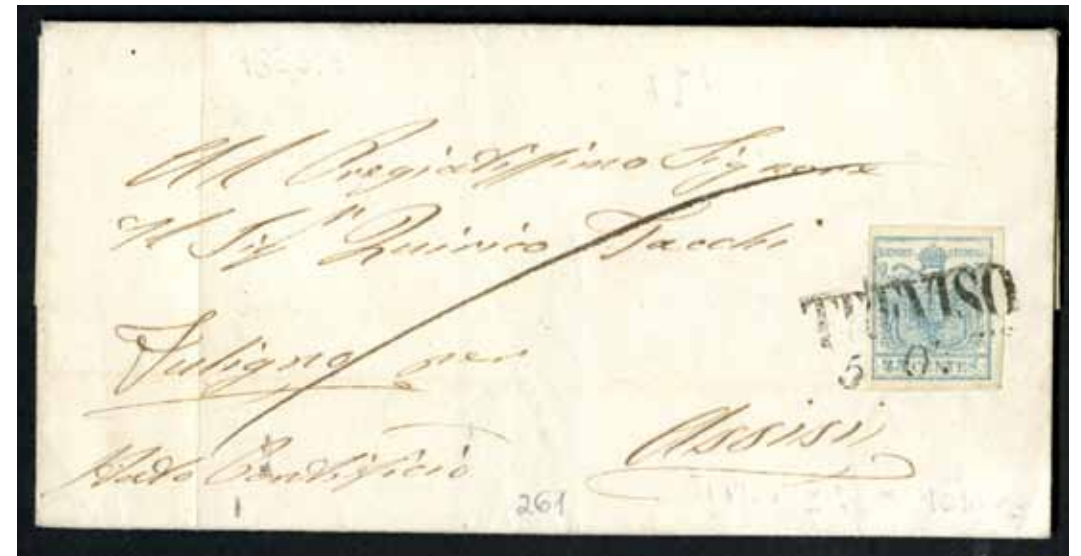 All Pregiatissimo Signore
Il Sigr Quirico Tacchi
TREVISO
5 O.
Fuligno per
Assisi
Stato Pontificio
1
261